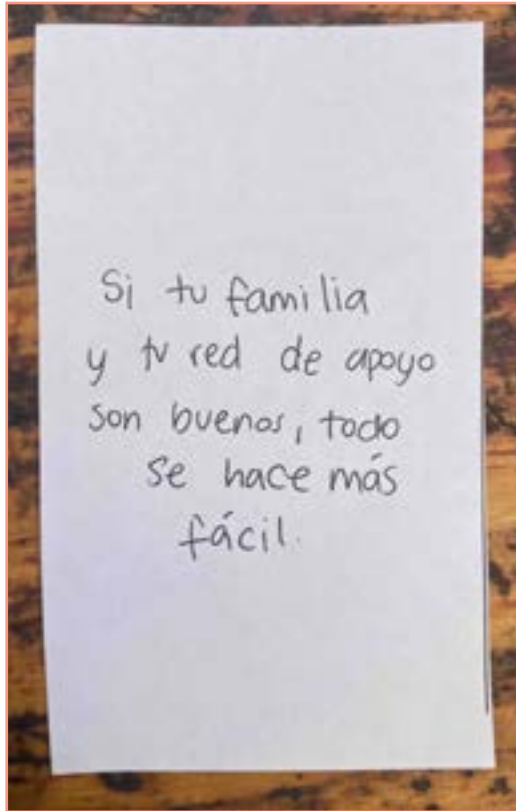 Si tu familia
y tu red de apoyo
son buenos, todo
se hace más
fácil.